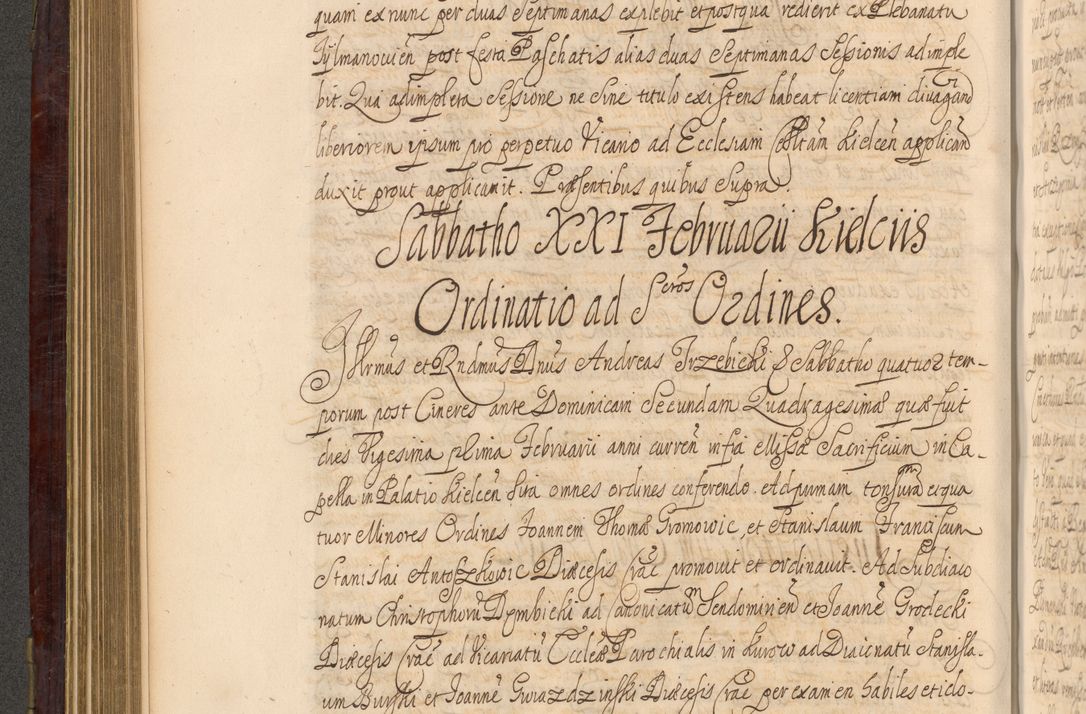 quam ex nunc per duas Septimanas explebit et postqua redierit ex Plebanatu
Tÿlmanowien̄ post festa Paschatis alias duas Septimanas Sessionis adimple
bit. Qua adimpleta Sessione ne sine titulo existens habeat licentiam divagandi
liberiorem ipsum pro perpetuo Vicario ad Ecclesiam Colltam̄ Kielcen̄ applican
duxit prout applicavit. Præsentibus quibus supra.
Sabbatho XXI Februarii Kielciis
Ordinatio ad Scros Ordines.
Illrmus et Rndmus Dnus Andreas Trzebicki & Sabbatho quatuor tem-
porum post Cineres ante Dominicam Secundam Quadragesimæ quæ fuit
dies Vigesima prima Februarii anni curren̄ infra Missæ Sacrificium in Ca-
pella in Palatio Kielcen̄ sua omnes ordines conferendo. Ad primam tonsuram et qua
tuor Minores Ordines Joannem Thomæ Gromowic, et Stanislaum Franciscum
Stanislai Antoszkowic Diæcesis Crac̄ promovit et ordinavit. Ad Subdiaco
natum Christophorū Dembicki ad Canonicatum Sendomirien̄ et Joannē Grodecki
Diæcesis Crac̄ ad Vicariatū Ecclæ Parochialis in Kurow ad Diaicnatū Stanisla-
um Burski et Joannē Gwiazdzinski Diæcesis Crac̄ per examen habiles et ido-